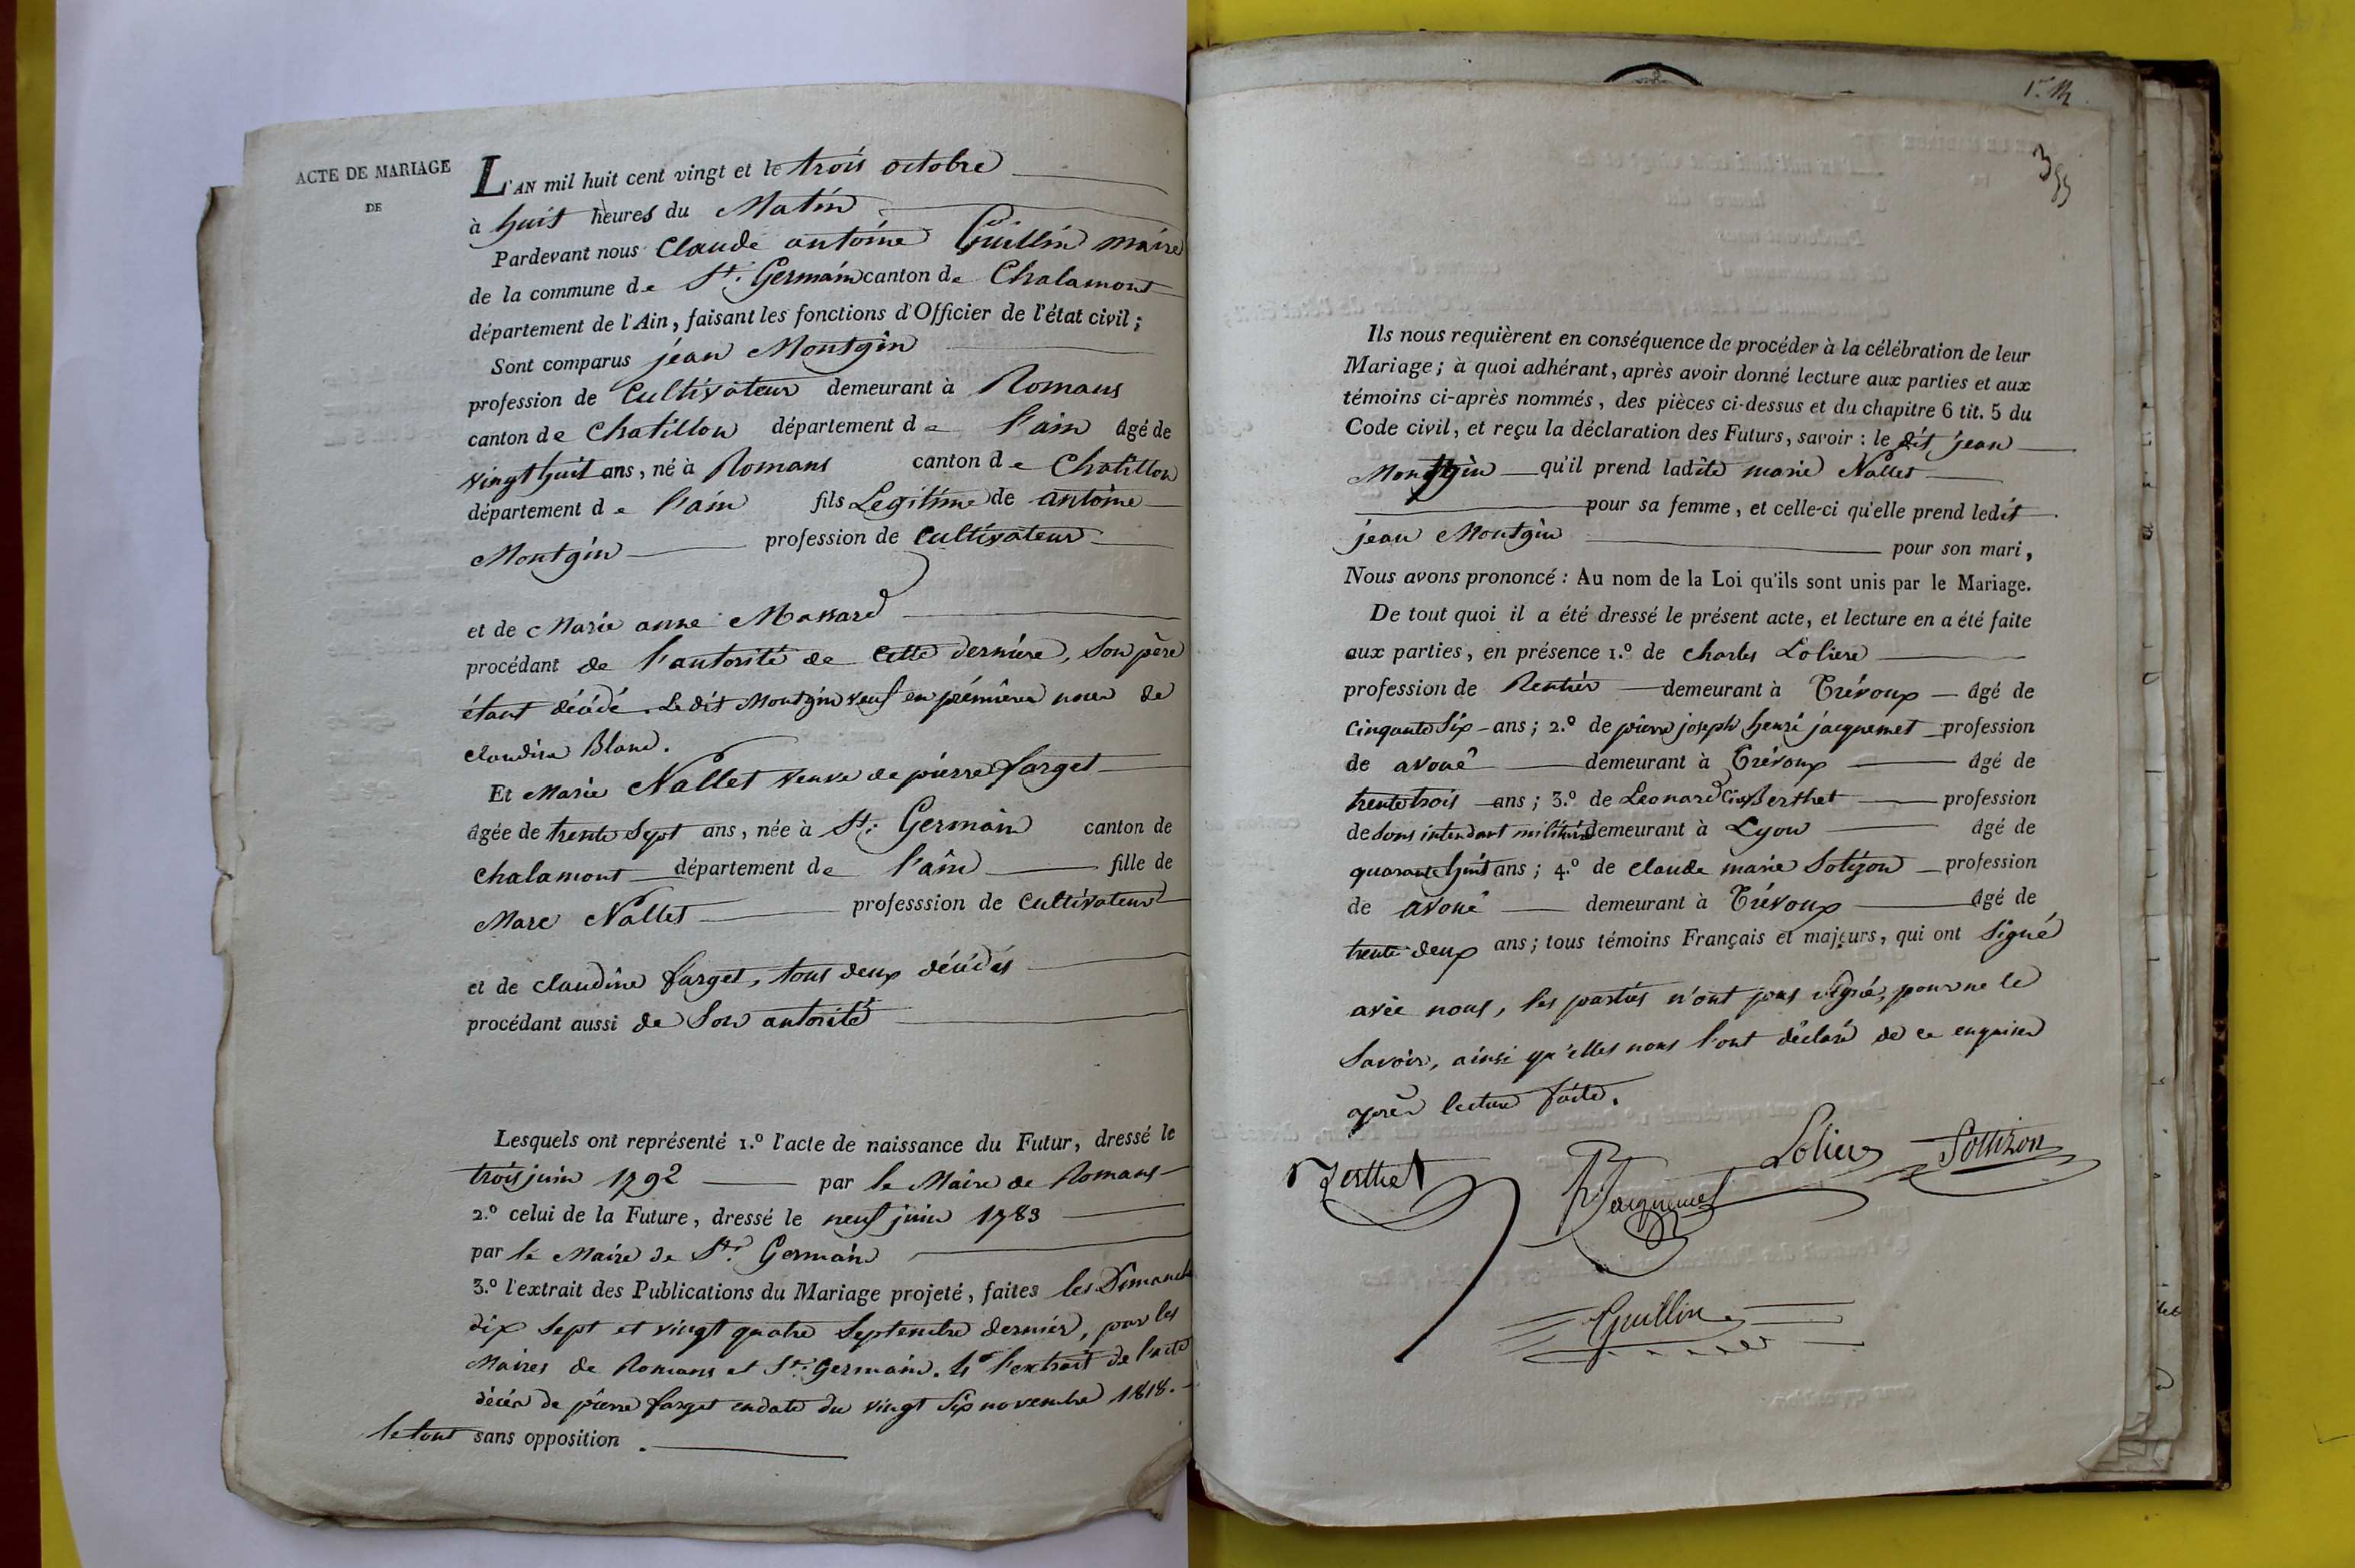 ACTE DE MARIAGE
DE
L'AN mil huit cent vingt et le trois octobre
à huit heures du Matin
Pardevant nous Claude antoine Guillin maire
de la commune de St. Germain canton de Chalamont
département de l'Ain, faisant les fonctions d'Officier de l'état civil ;
Sont comparus jean Montgin
profession de Cultivateur demeurant à Romans
canton de Chatillon département de l'ain âgé de
vingt huit ans, né à Romans canton de Chatillon
département de l'ain fils Legitime de antoine
Montgin profession de Cultivateur
et de Marie anne Massard
procédant de l'autorité de cette derniere, son père
étant décédé. Le dit Montgin veuf en prémières noces de
claudine Bland.
Et Marie Nallet veuve de pierre farget
âgée de trente sept ans, née à St. Germain canton de
chalamont département de l'ain fille de
Marc Nallet professsion de Cultivateur
et de claudine farget, tous deux décédés
procédant aussi de Son autorité
Lesquels ont représenté 1.º l'acte de naissance du Futur, dressé le
trois juin 1792 par le Maire de Romans
2.º celui de la Future, dressé le neuf juin 1783
par le Maire de St. Germain
3.º l'extrait des Publications du Mariage projeté, faites les Dimanche
dix sept et vingt quatre Septembre dernier, par les
Maires de Romans et St. Germain. 4º l'extrait de l'acte
décès de pierre farget en date du vingt Six novembre 1818.
le tout sans opposition.
Ils nous requièrent en conséquence de procéder à la célébration de leur
Mariage ; à quoi adhérant, après avoir donné lecture aux parties et aux
témoins ci-après nommés, des pièces ci-dessus et du chapitre 6 tit. 5 du
Code civil, et reçu la déclaration des Futurs, savoir : le dit jean
Montgin qu'il prend ladite marie Nallet
pour sa femme, et celle-ci qu'elle prend ledit
jean Montgin pour son mari,
Nous avons prononcé : Au nom de la Loi qu'ils sont unis par le Mariage.
De tout quoi il a été dressé le présent acte, et lecture en a été faite
aux parties, en présence 1.º de charles Loliere
profession de Rentier demeurant à Trévoux âgé de
Cinquante Six ans ; 2.º de pierre joseph henri jacquemet profession
de avoué demeurant à Trévoux âgé de
trente trois ans ; 3.º de Leonard Berthet profession
de sous intendant militaire demeurant à Lyon âgé de
quarante huit ans ; 4.º de claude marie Solizon profession
de avoué demeurant à Trévoux âgé de
trente deux ans ; tous témoins Français et majeurs, qui ont Signé
avec nous, les parties n'ont pas signé, pour ne le
Savoir, ainsi qu'elles nous l'ont déclaré de ce enquises
après lecture faite.
Berthet Jacquemet Lolier Solizon
Guillin